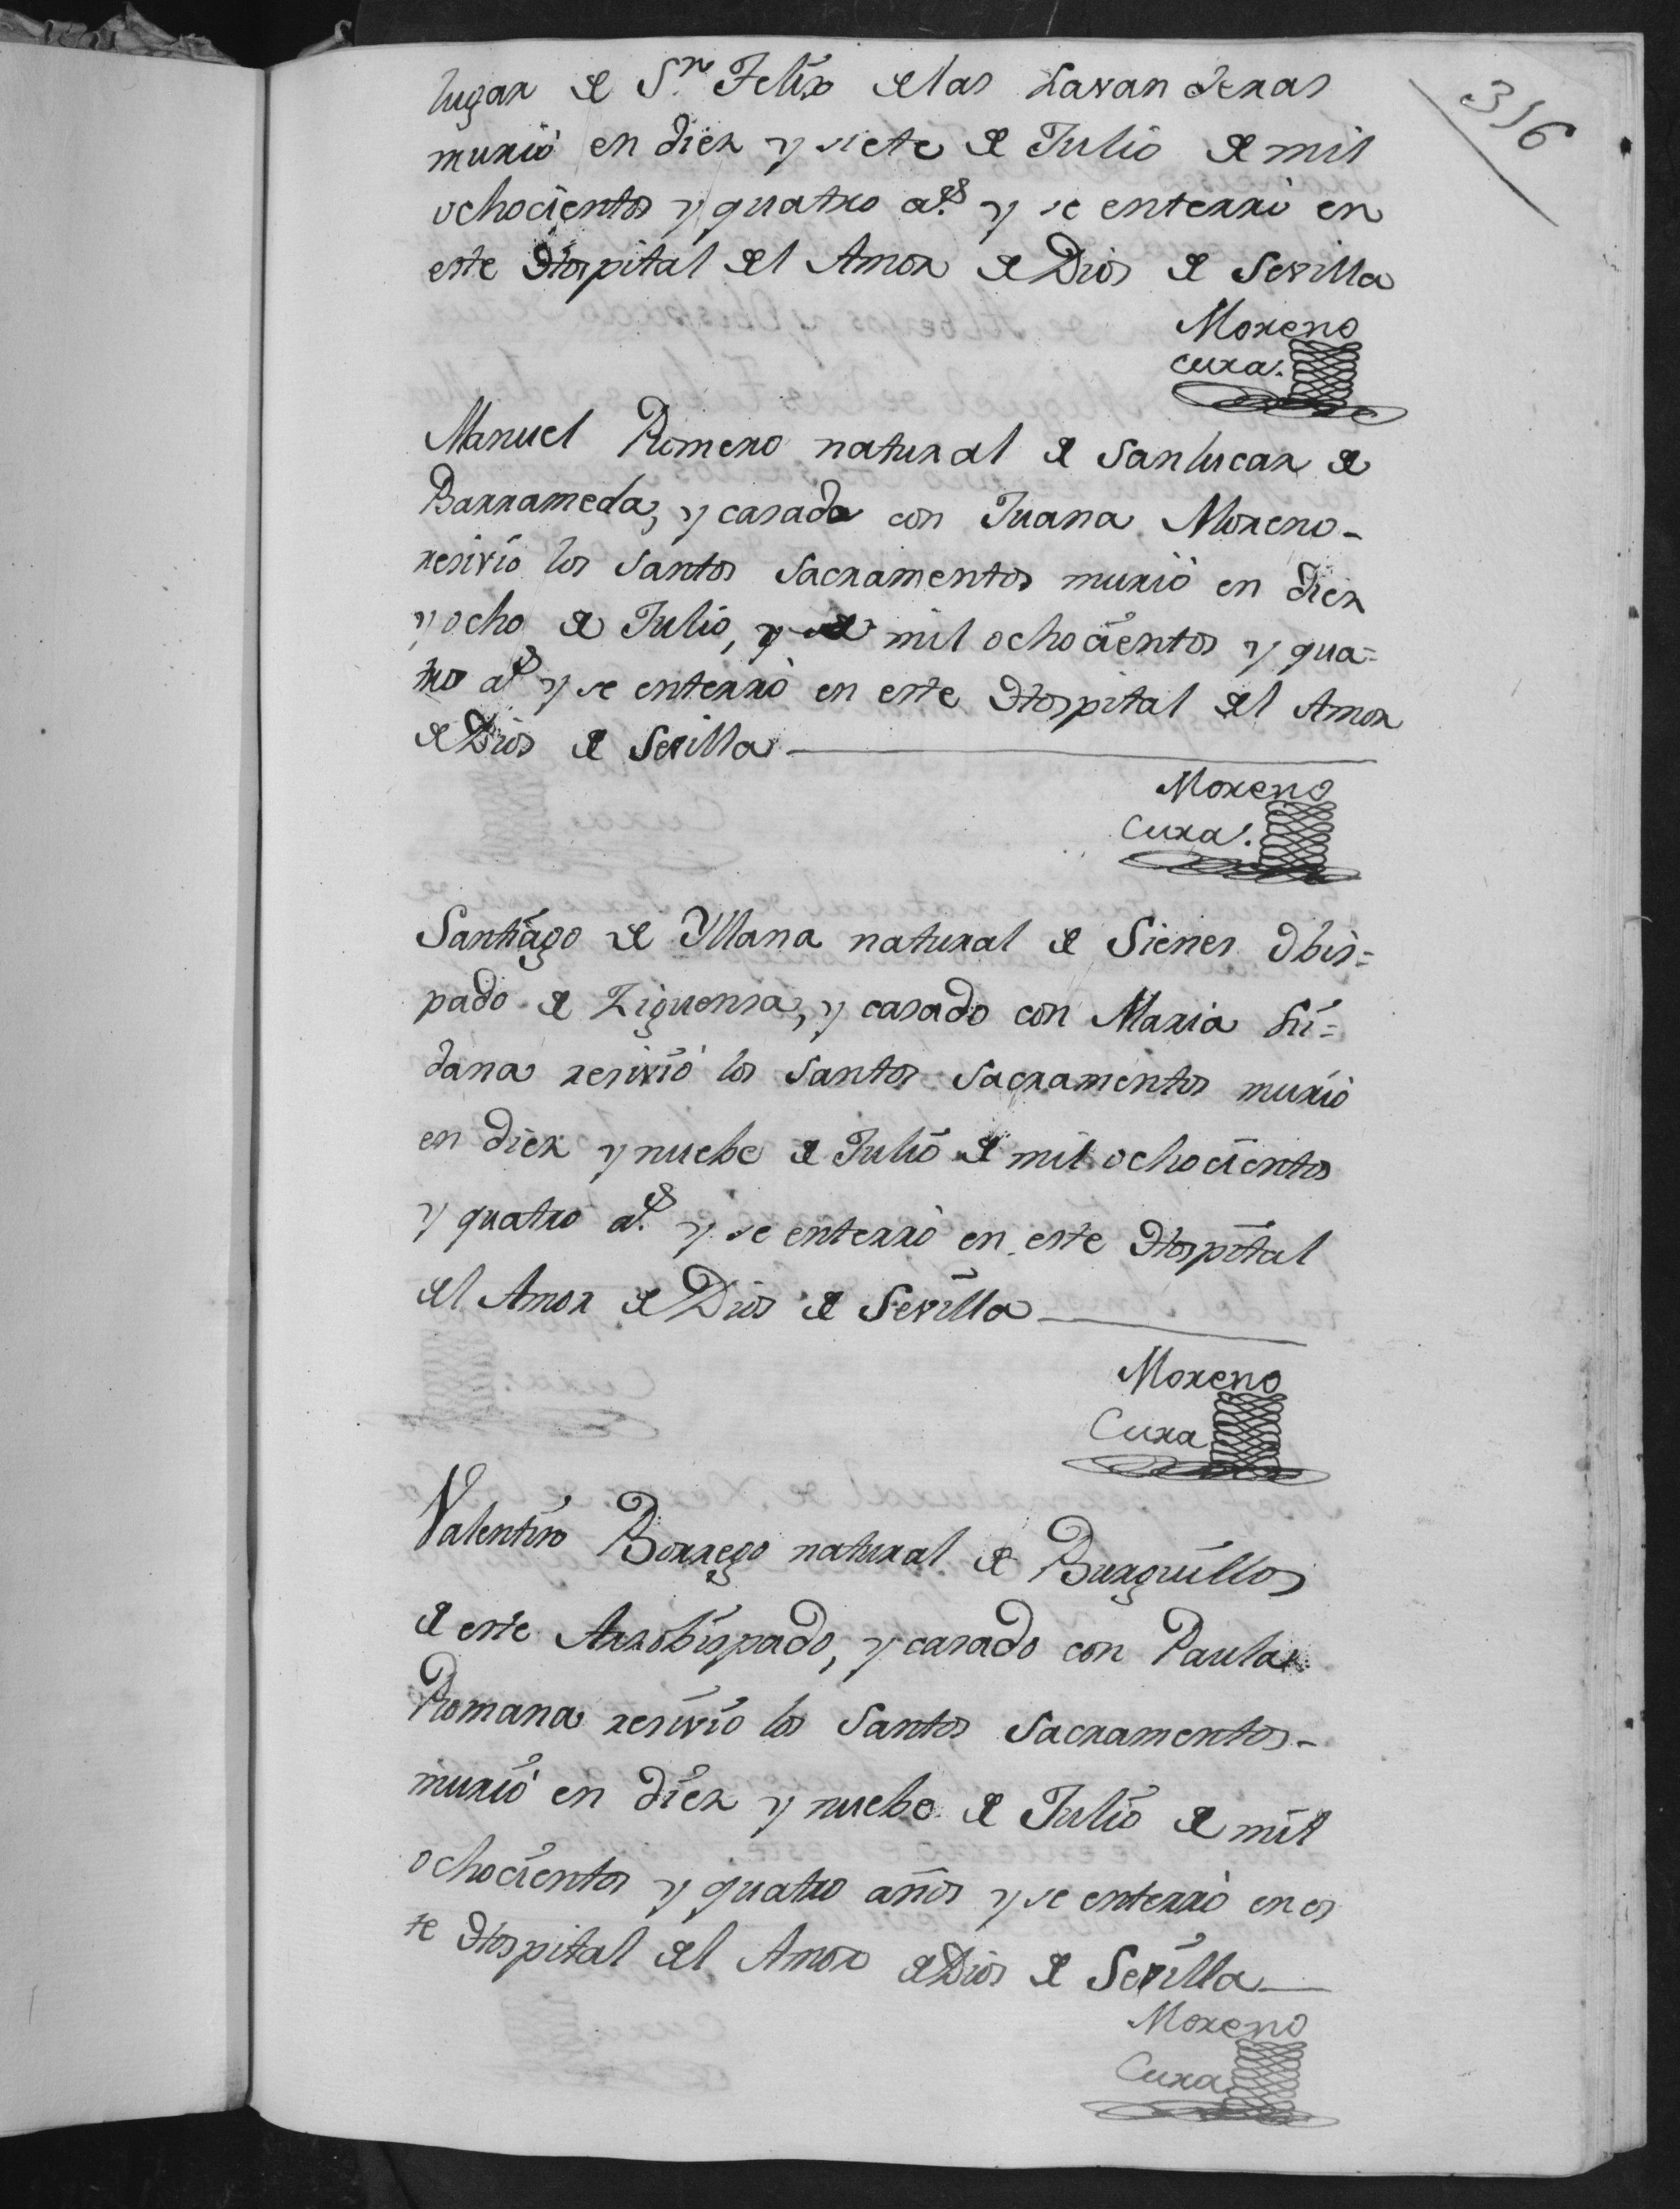 316
lugar de Sn. Felix de las Lavanderas
murió en diez y siete de Julio de mil
ochocientos y quatro as. y se enterró en
este Hospital del Amor de Dios de Sevilla
Moreno
Cura.
Manuel Romero natural de Sanlucar de
Barrameda, y casado con Juana Moreno-
resivio los Santos Sacramentos murió en diez
y ocho de Julio, y de mil ochocientos y qua=
tro as. y se enterró en este Hospital del Amor
de Dios de Sevilla
Moreno
Cura.
Santiago de Yllana natural de Sienes Obis=
pado de Ziguensa, y casado con Maria Li=
dana resivió los Santos Sacramentos murió
en diez y nuebe de Julio de mil ochocientos
y quatro as. y se enterró en este Hospital
del Amor de Dios de Sevilla
Moreno
Cura
Valentin Borrego natural de Burguillos
de este Arzobispado, y casado con Paula
Romana resivio los Santos Sacramentos-
murió en diez y nuebe de Julio de mil
ochocientos y quatro años y se enterró en es
te Hospital del Amor de Dios de Sevilla
Moreno
Cura